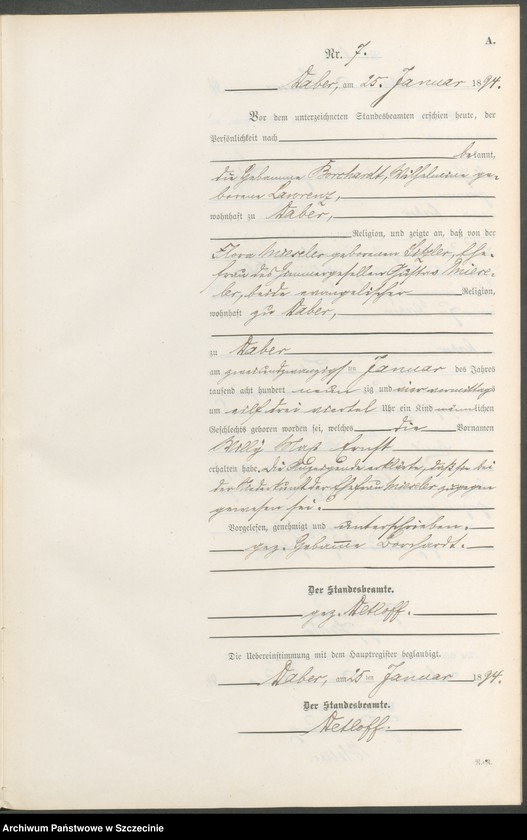 A.
Nr. 7.
Daber, am 25. Januar 1894.
Vor dem unterzeichneten Standesbeamten erschien heute, der
Persönlichkeit nach
bekannt,
die Hebamme Borchardt, Wilhelmine ge-
borene Lawrenz,
wohnhaft zu Daber,
Religion, und zeigte an, daß von der
Flora Mieseler geborenen Ehe-
frau des Zimmergesellen Gustav Miese-
ler, beide evangelischer Religion,
wohnhaft zu Daber,
zu Daber
am zweiundzwanzigsten Januar des Jahres
tausend acht hundert neunzig und vier vormittags
um elf drei viertel Uhr ein Kind männlichen
Geschlechts geboren worden sei, welches die Vornamen
Willy Max Ernst
erhalten habe. Die Anzeigende erklärte, daß sie bei
der Niederkunft der Ehefrau Mieseler zugegen
gewesen sei.
Vorgelesen, genehmigt und unterschrieben.
gez. Hebamme Borchardt.
Der Standesbeamte.
gez. Detloff.
Die Uebereinstimmung mit dem Hauptregister beglaubigt.
Daber, am 25 ten Januar 1894.
Der Standesbeamte.
Detloff.
Archiwum Państwowe w Szczecinie